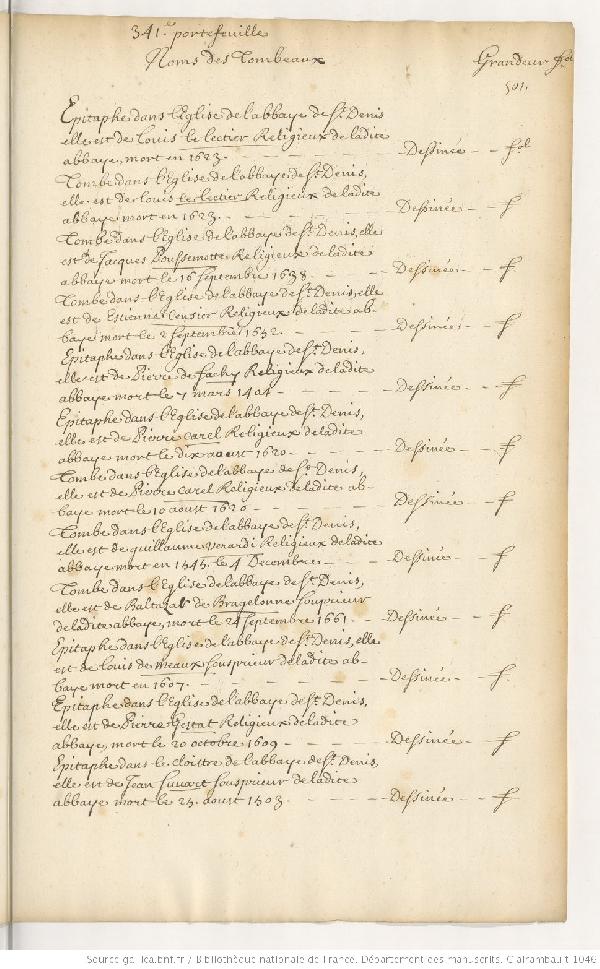 341e portefeuille
Noms des Tombeaux
Grandeur fol
501.
Epitaphe dans l'Eglise de l'abbaye de St. Denis
elle est de Louis le lectier Religieux de ladite
abbaye, mort en 1623. Dessinée fol
Tombe dans l'Eglise de l'abbaye de St. Denis,
elle est de Louis le lectier Religieux de ladite
abbaye mort en 1623. Dessinée f
Tombe dans l'Eglise de l'abbaye de St. Denis, elle
est de Jacques Doussemotte Religieux de ladite
abbaye mort le 16 Septembre 1638. Dessinée f
Tombe dans l'Eglise de l'abbaye de St. Denis, elle
est de Estienne Religieux de ladite ab-
baye mort le 2 Septembre 1652. Dessinée f
Epitaphe dans l'Eglise de l'abbaye de St. Denis,
elle est de Pierre de Religieux de ladite
abbaye mort le 7 mars 1404 Dessinée f
Epitaphe dans l'Eglise de l'abbaye de St. Denis,
elle est de Pierre Carel Religieux de ladite
abbaye mort le dix aoust 1620. Dessinée f
Tombe dans l'Eglise de l'abbaye de St. Denis,
elle est de Pierre Carel Religieux de ladite ab-
baye mort le 10 aoust 1620 Dessinée f
Tombe dans l'Eglise de l'abbaye de St. Denis,
elle est de guillaume verardi Religieux de ladite
abbaye mort en 1545. le 4 Decembre. Dessinée f
Tombe dans l'Eglise de l'abbaye de St. Denis,
elle est de Baltazar de Bragelonne Souprieur
de ladite abbaye, mort le 24 Septembre 1661. Dessinée f
Epitaphe dans l'Eglise de l'abbaye de St. Denis, elle
est de Louis de meaux Souprieur de ladite ab-
baye mort en 1607. Dessinée f
Epitaphe dans l'Eglise de l'abbaye de St. Denis,
elle est de Pierre Gestat Religieux de ladite
abbaye, mort le 20 octobre 1609 Dessinée f
Epitaphe dans le cloistre de l'abbaye de St. Denis,
elle est de Jean Souprieur de ladite
abbaye mort le 25. aoust 1503. Dessinée f
Source gallica.bnf.fr / Bibliothèque nationale de France. Département des manuscrits. Clairambault 1046